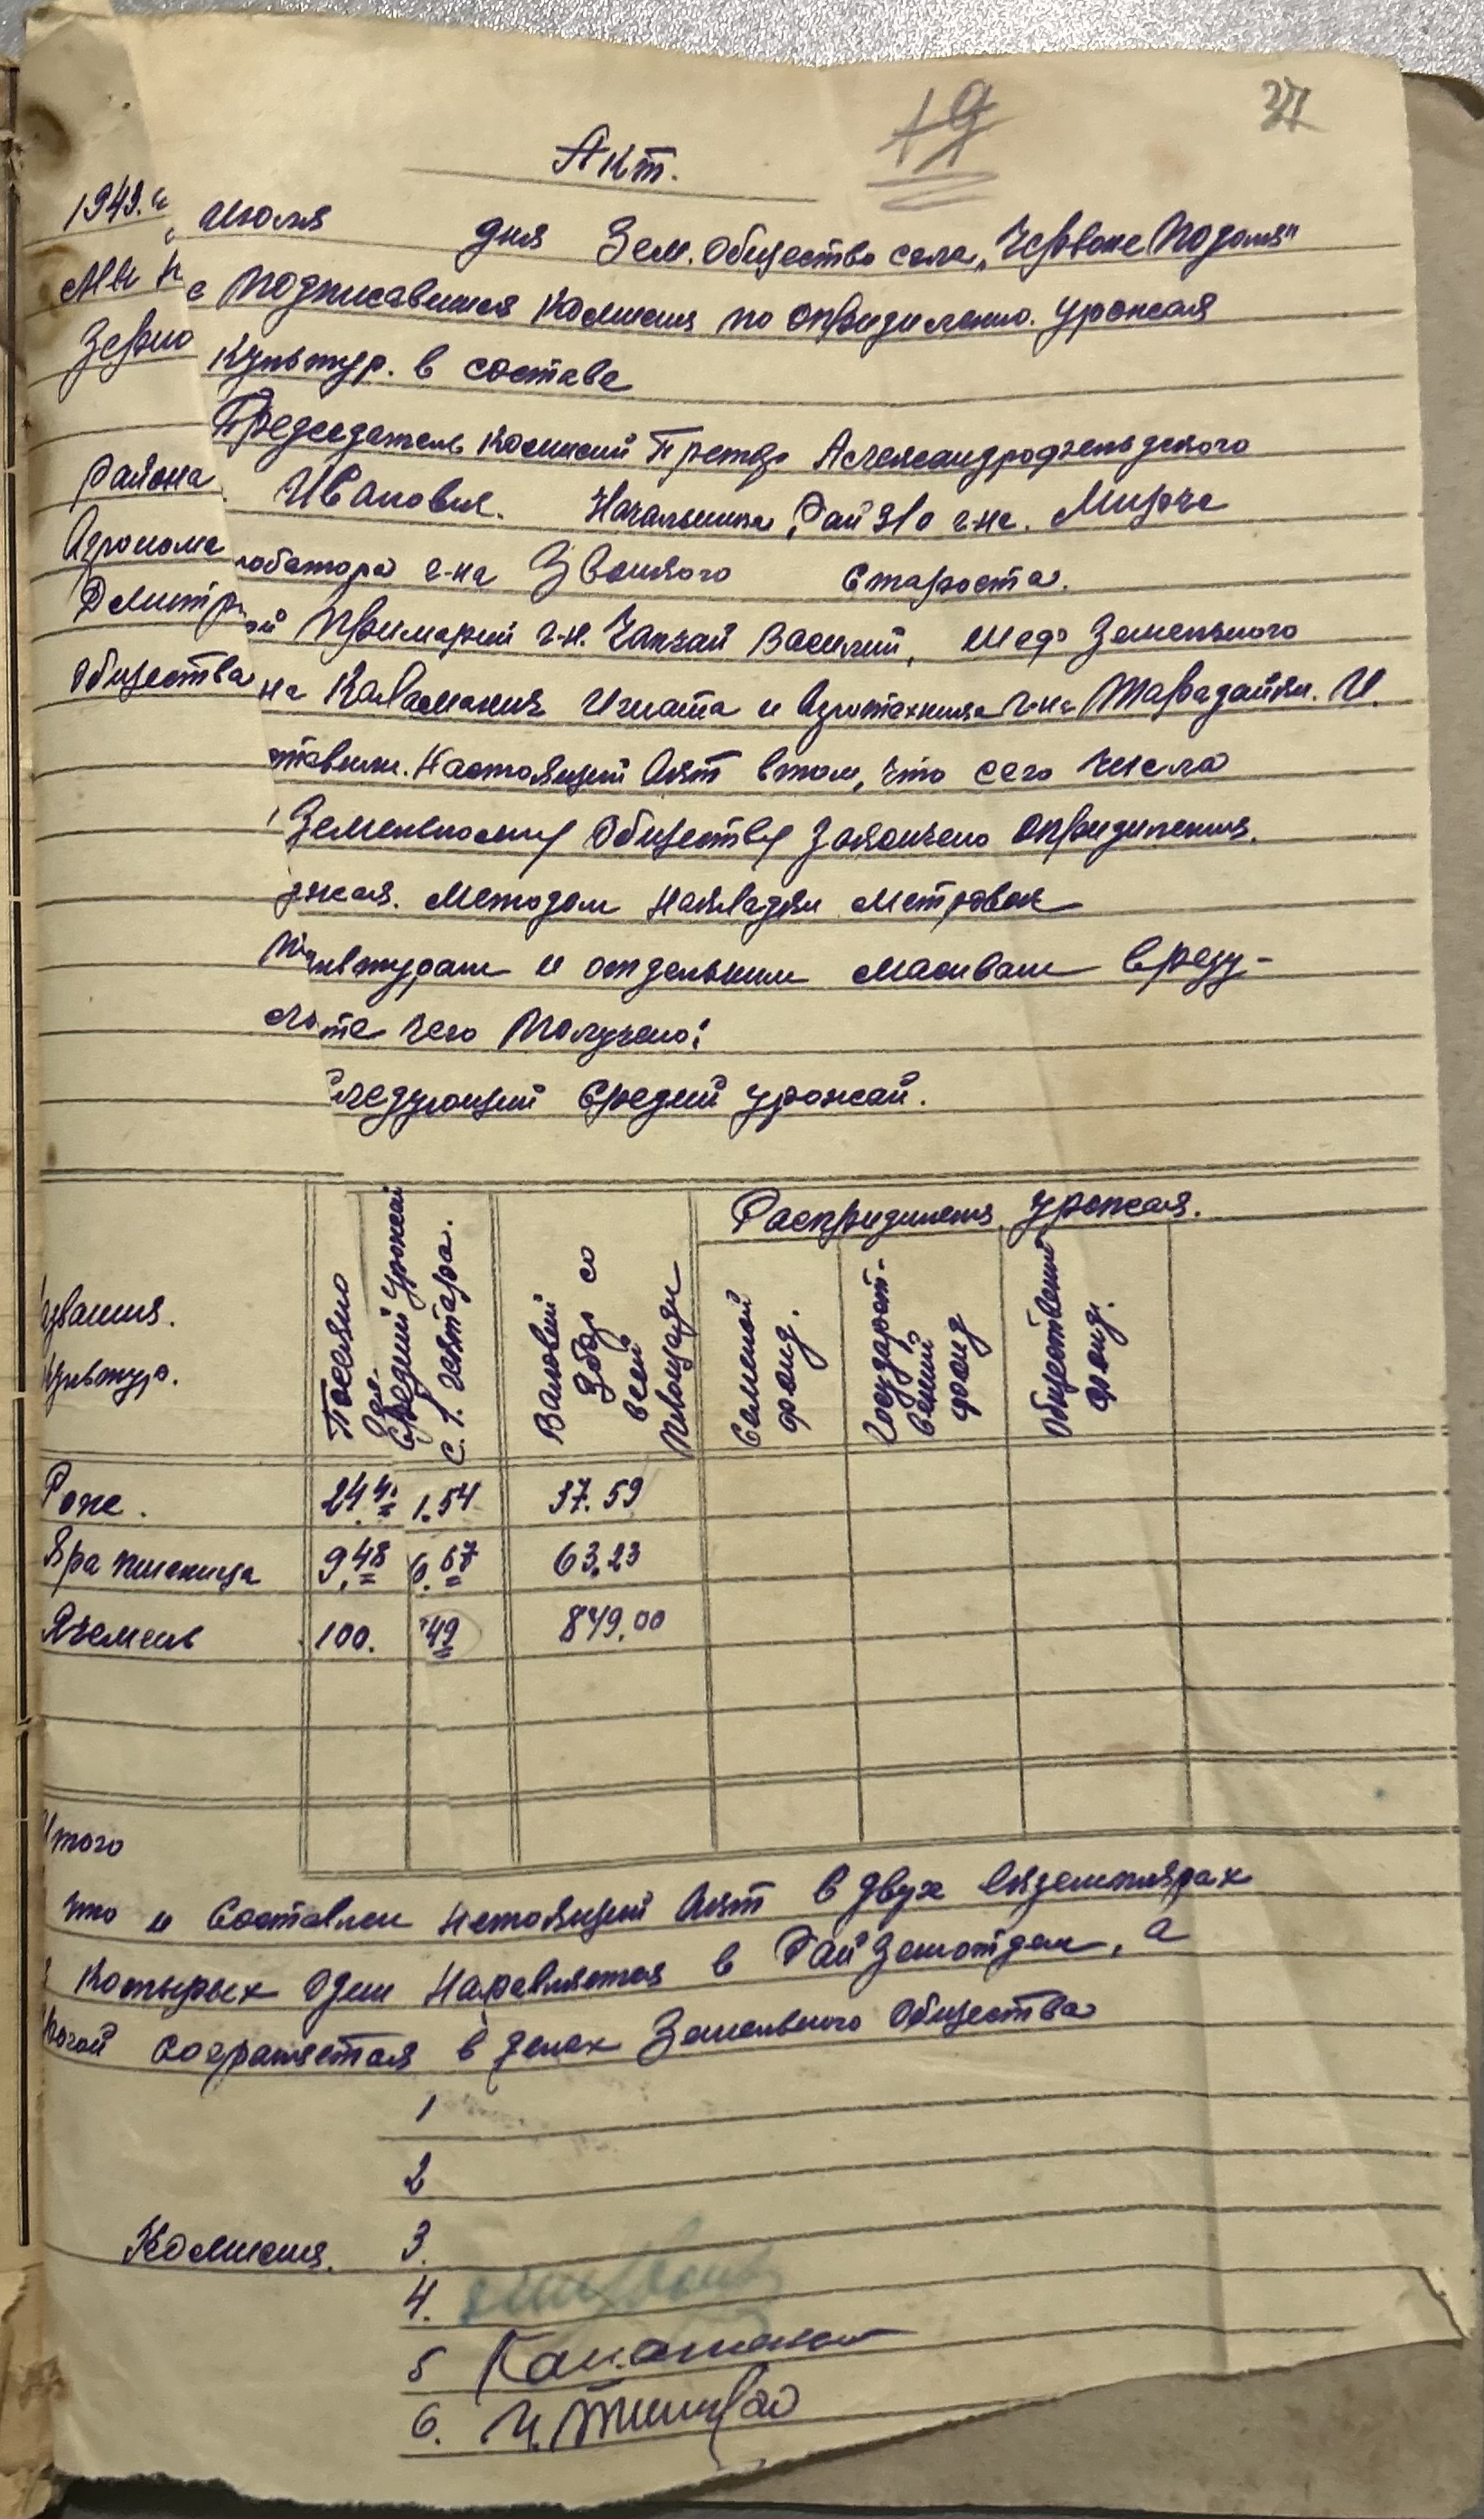 37
19
Акт.
1943. " " Июля дня Зем. Общество села „Червоне Подоля"
Мы н с Подписавшися Комисия по опридилению. урожая
Зерно культур. в составе
Председатель Комисий Претор Александрофельдского
Района Ивановил. Начальника РайЗо г-на. Мирча
Агронома робатора г-на Звонкого Староста.
Дмитр ой Примарий г-н. Чапчай Василий, шеф Земельного
Общества на Каламания Игната и Агротехника г-на И.
тавили. Настоящий Акт втом, что сего Числа
Земельному Обществу Закончено опридиления.
жая. Методом Накладки Метровок
культурам и отдельним Масивам врезу-
льте чего Получено:
ледующий Средний урожай.
азвания.
культур.
Посеяно
Га.
Средний урожай
с 1. гектара.
Валовий
збор со
всей
Площади
Распридиления урожая.
Семеной
фонд.
Государст-
вений
фонд
Общественний
фонд.
Рожь. 24.4. 1.54 37.59
Яра пшеница 9.48 6.67 63.23
Ячемень 100. 49 849.00
Итого
что и Составлен Нетоящий Акт в двух екземплярах
Которых Один Наравляется в РайЗемотдел, а
рогой сохраняется в делах Земельного Общества
1
2
Комисия. 3.
4.
5
6.